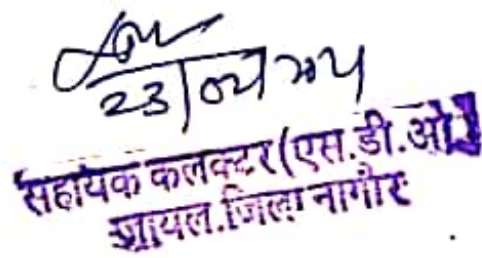 23/04/24
सहायक कलक्टर(एस.डी.ओ.)
जायल.जिला नागौर